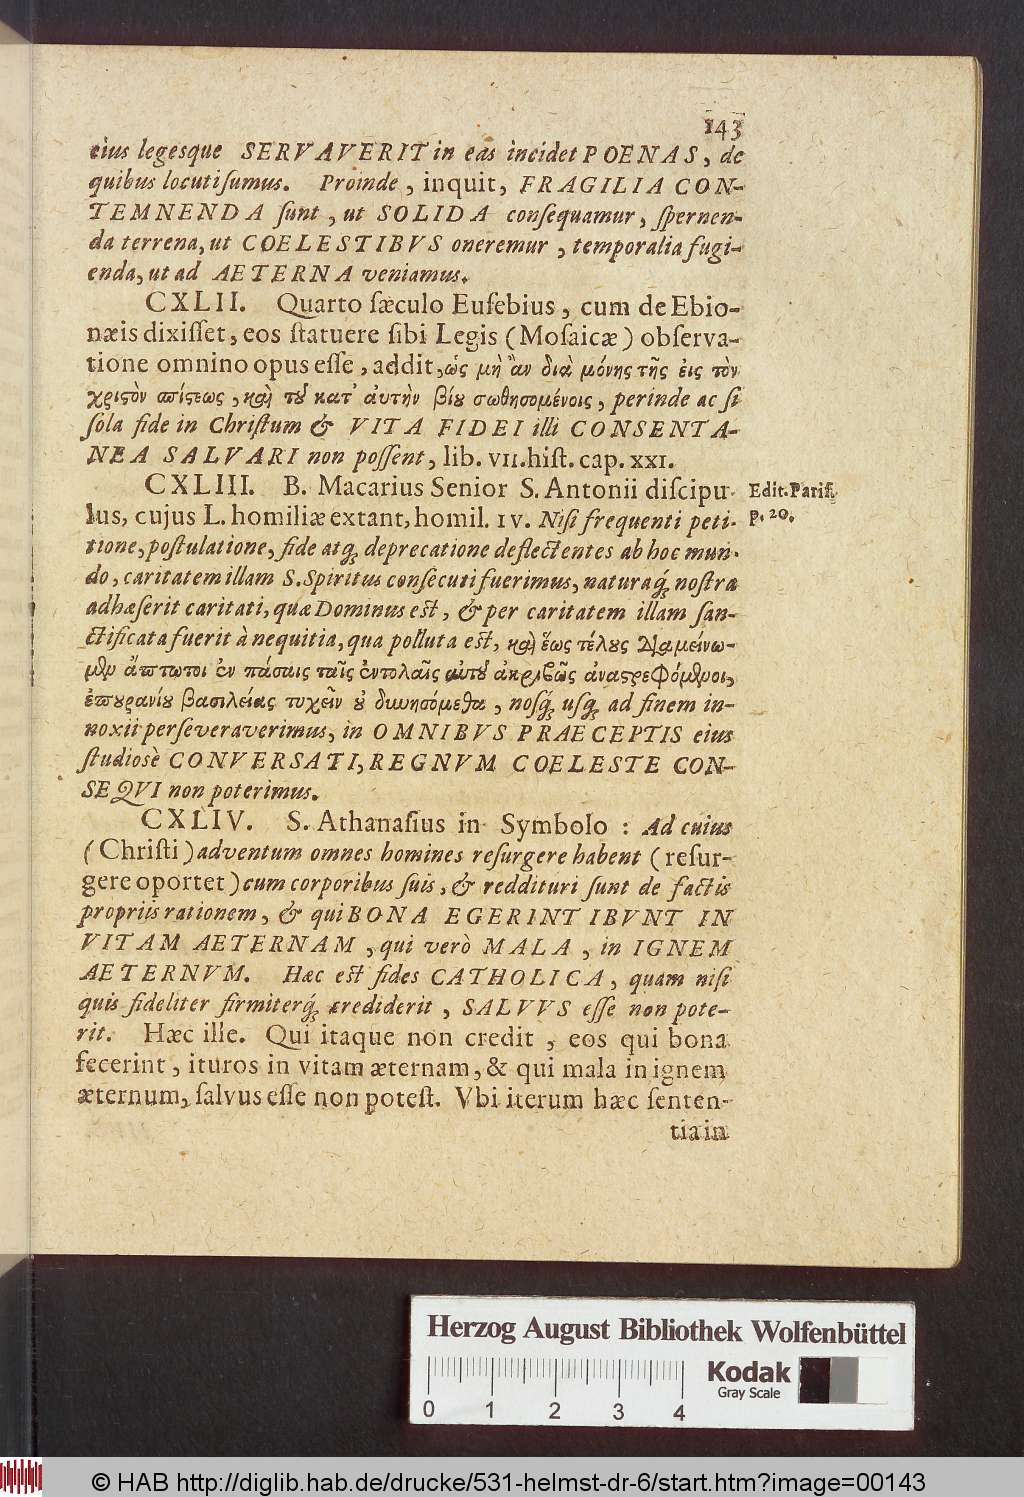 143
eius legesque SERVAVERIT in eas incidet POENAS, de
quibus locuti ſumus. Proinde, inquit, FRAGILIA CON-
TEMNENDA ſunt, ut SOLIDA conſequamur, ſpernen-
da terrena, ut COELESTIBVS oneremur, temporalia fugi-
enda, ut ad AETERNA veniamus.
CXLII. Quarto ſæculo Euſebius, cum de Ebio-
næis dixiſſet, eos ſtatuere ſibi Legis (Moſaicæ) obſerva-
tione omnino opus eſſe, addit, ὡς μὴ ἂν διὰ μόνης τῆς εἰς τὸν
χριςὸν πίςεως, καὶ τȣ͂ κατ' ἀυτὴν βίȣ σωθησομένοις, perinde ac ſi
ſola fide in Chriſtum & VITA FIDEI illi CONSENTA-
NEA SALVARI non poſſent, lib. VII. hiſt. cap. XXI.
CXLIII. B. Macarius Senior S. Antonii diſcipu-
lus, cujus L. homiliæ extant, homil. IV. Niſi frequenti peti-
tione, poſtulatione, fide atq́; deprecatione deflectentes ab hoc mun-
do, caritatem illam S. Spiritus conſecuti fuerimus, naturaq́; noſtra
adhæſerit caritati, quæ Dominus eſt, & per caritatem illam ſan-
ctificata fuerit à nequitia, qua polluta est, καὶ ἕως τέλους διαμείνω-
μεν ἄπτωτοι ἐν πάσαις ταῖς ἐντολαῖς αὐτȣ͂ ἀκριβῶς ἀναςρεφόμενοι,
ἐπȣρανίȣ βασιλείας τυχεῖν ȣ̓ δυνησόμεθα, noſq́; uſq́; ad finem in-
noxii perſeveraverimus, in OMNIBVS PRAECEPTIS eius
ſtudiosè CONVERSATI, REGNVM COELESTE CON-
SEQVI non poterimus.
Edit. Pariſ.
p. 20.
CXLIV. S. Athanaſius in Symbolo: Ad cuius
(Chriſti) adventum omnes homines reſurgere habent (reſur-
gere oportet) cum corporibus ſuis, & reddituri ſunt de factis
propriis rationem, & qui BONA EGERINT IBVNT IN
VITAM AETERNAM, qui verò MALA, in IGNEM
AETERNVM. Hæc est fides CATHOLICA, quam niſi
quis fideliter firmiterq́; crediderit, SALVVS eſſe non pote-
rit. Hæc ille. Qui itaque non credit, eos qui bona
fecerint, ituros in vitam æternam, & qui mala in ignem
æternum, ſalvus eſſe non poteſt. Vbi iterum hæc ſenten-
tia in
Herzog August Bibliothek Wolfenbüttel
Kodak
Gray Scale
0 1 2 3 4
© HAB http://diglib.hab.de/drucke/531-helmst-dr-6/start.htm?image=00143